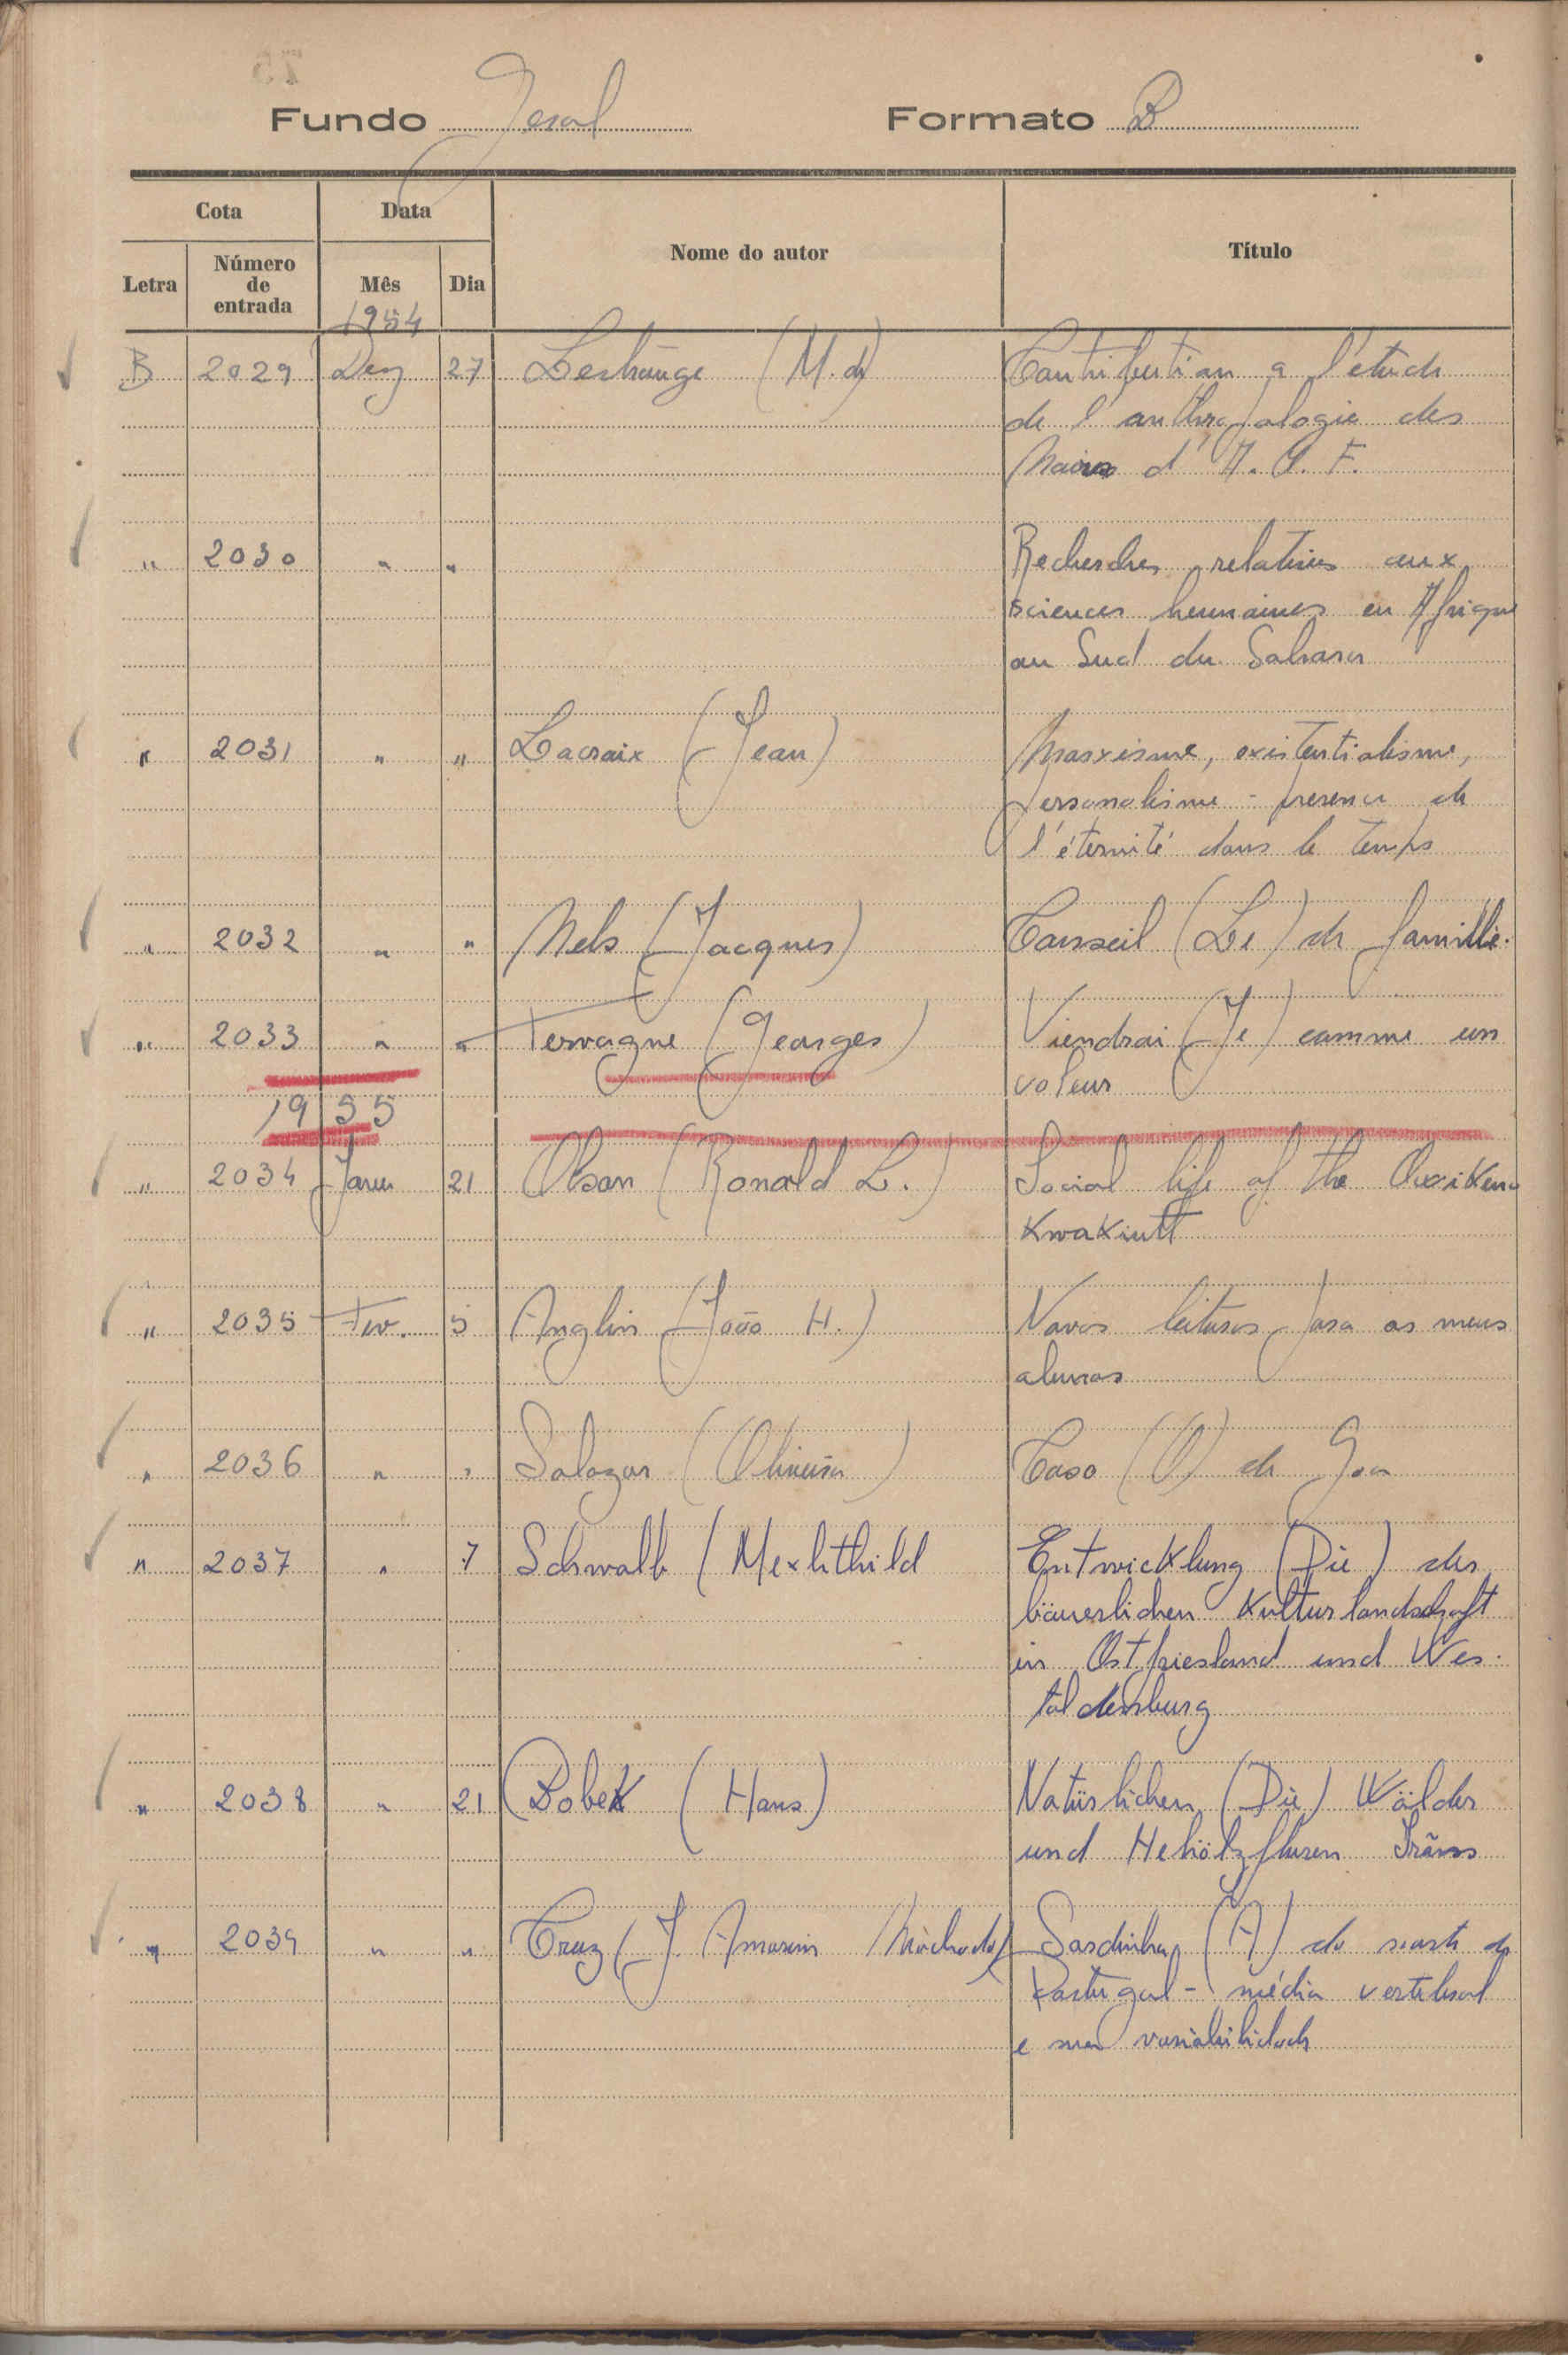 Fundo Geral Formato B
Cota Data Nome do autor Título
Letra Número de entrada Mês Dia
1954
B 2029 Dez 27 Lestrange (M. de) Contribution a l'étude
de l'anthropologie des
Noirs d'A. O. F.
" 2030 " " Recherches relatives aux
sciences humaines en Afrique
au Sud du Sahara
" 2031 " " Lacroix (Jean) Marxisme, existentialisme,
personalisme - presence de
l'éternité dans le temps
" 2032 " " Nels (Jacques) Conseil (Le) de famille.
" 2033 " " Tervagne (Georges) Viendrai (Je) comme un
voleur
1955
" 2034 Janu 21 Olson (Ronald L.) Social life of the Owikeno
Kwakiutt
" 2035 Fev. 5 Anglin (João H.) Novas leituras para os meus
alunos
" 2036 " " Salazar (Oliveira) Caso (O) de Goa
" 2037 " 7 Schwalb (Mexhthild Entwicklung (Die) der
bäuerlichen Kulturlandschaft
in Ostfriesland und Wes-
toldenburg
" 2038 " 21 Bobek (Hans) Natürlichen (Die) Wälder
und Hehölzfluren Irãns
" 2039 " " Cruz (J. Amorim Machado) Sardinha (A) do norte de
Portugal - média vertebral
e sua variabilidade